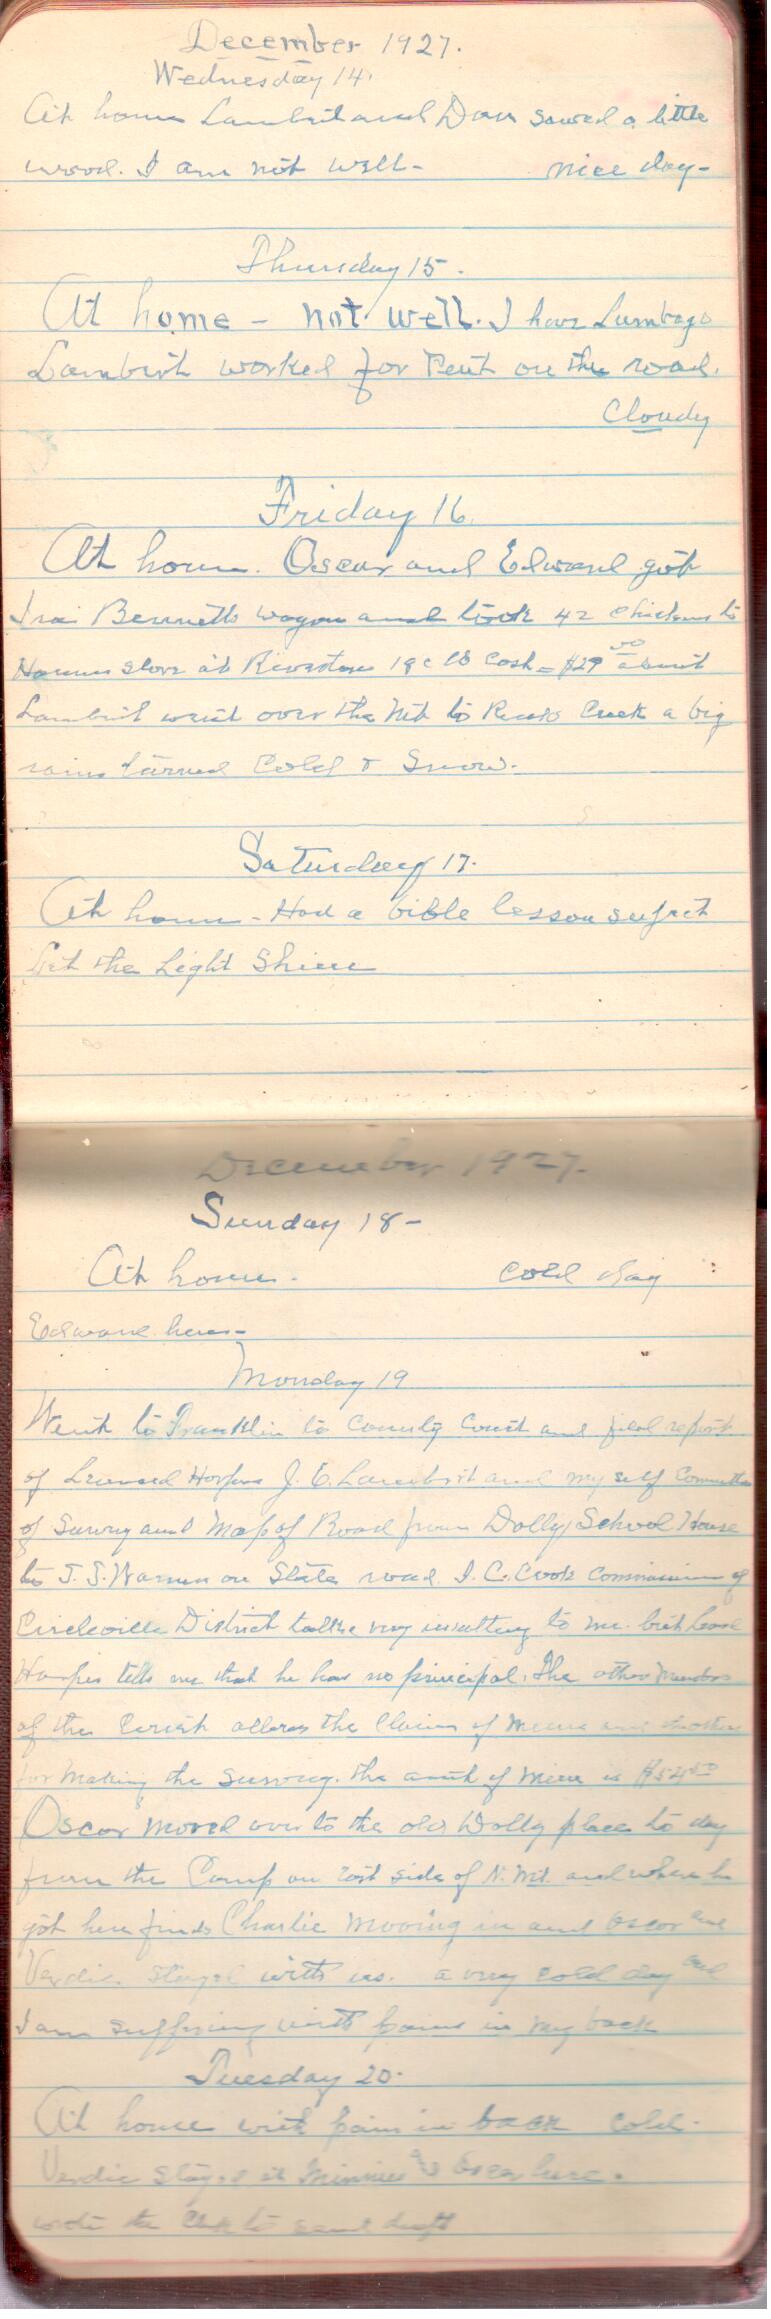 December 1927.
Wednesday 14.
At home Lambert and Dan sawed a little
wood. I am not well - nice day -
Thursday 15.
At home - not well. I have Lumbago
Lambert worked for on the road.
Cloudy
Friday 16.
At home. Oscar and Edward got
Ira Bennetts wagon and took 42 chickens to
store at Riverton 19c lb Cash = $29 00 about
Lambert went over the Mt to Creek a big
rain turned Cold & Snow.
Saturday 17.
At home - Had a bible lesson
Let the Light Shine
December 1927.
Sunday 18 -
At home. cold day
Edward here -
Monday 19
Went to Franklin to County Court and filed report
of Leonard Harper J. E. Lambert and my self Committee
of Survey and Map of Road from Dolly School House
to on State road. I. C. Cook Commissioner of
Circleville District talke very insulting to me. but
Harper tells me that he has no principal. The other Members
of the allows the Claim of and
for making the Survey. the amt of mine is
Oscar moved over to the old Dolly place to day
from the Camp on side of N. Mt. and when he
got here finds Charlie mooving in and Oscar and
Verdie stayed with us. a very cold day and
I am suffering with pains in my back
Tuesday 20.
At home with pain in back cold.
Verdie stayed at Minnies Oscar here.
wrote the to draft